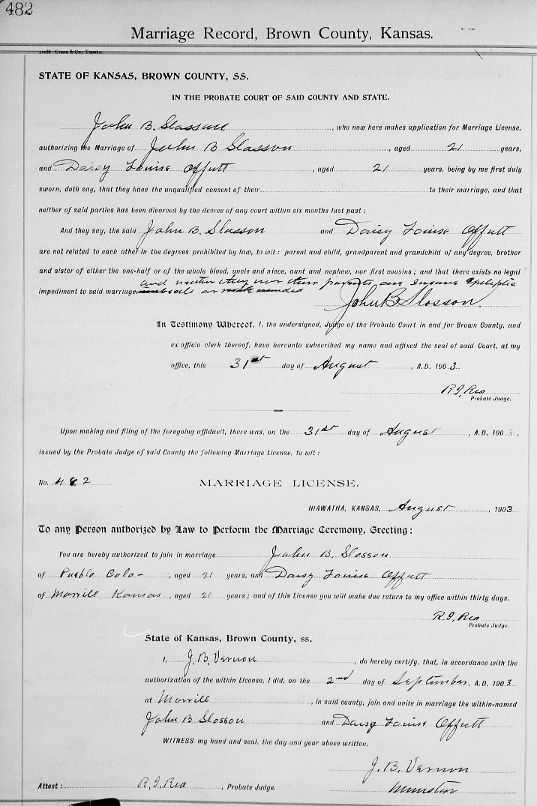 482
Marriage Record, Brown County, Kansas.
STATE OF KANSAS, BROWN COUNTY, SS.
IN THE PROBATE COURT OF SAID COUNTY AND STATE.
John B. Slosson, who now here makes application for Marriage License,
authorizing the Marriage of John B Slosson, aged 21 years,
and Daisy Louise Offutt, aged 21 years, being by me first duly
sworn, doth say, that they have the unqualified consent of their to their marriage, and that
neither of said parties has been divorced by the decree of any court within six months last past:
And they say, the said John B. Slosson and Daisy Louise Offutt
are not related to each other in the degrees prohibited by law, to wit: parent and child, grandparent and grandchild of any degree, brother
and sister of either the one-half or of the whole blood, uncle and niece, aunt and nephew, nor first cousins; and that there exists no legal
and neither they nor their parents, are Insane Epileptic
impediment to said marriage
John B Slosson.
In Testimony Whereof, I, the undersigned, Judge of the Probate Court in and for Brown County, and
ex officio clerk thereof, have hereunto subscribed my name and affixed the seal of said Court, at my
office, this 31st day of August, A.D. 1903.
R.I. Rea
Probate Judge.
Upon making and filing of the foregoing affidavit, there was, on the 31st day of August, A.D. 1903,
issued by the Probate Judge of said County the following Marriage License, to wit:
No. 482 MARRIAGE LICENSE.
HIAWATHA, KANSAS, August, 1903
To any Person authorized by Law to Perform the Marriage Ceremony, Greeting:
You are hereby authorized to join in marriage John B. Slosson
of Pueblo Colo-, aged 21 years, and Daisy Louise Offutt
of Morrill Kansas, aged 21 years; and of this License you will make due return to my office within thirty days.
R.I. Rea
Probate Judge.
State of Kansas, Brown County, ss.
I, J.B. Vernon, do hereby certify, that, in accordance with the
authorization of the within License, I did, on the 2nd day of September, A.D. 1903.
at Morrill, in said county, join and unite in marriage the within-named
John B Slosson and Daisy Louise Offutt
WITNESS my hand and seal, the day and year above written.
J.B. Vernon
Minister
Attest: R.I. Rea, Probate Judge.